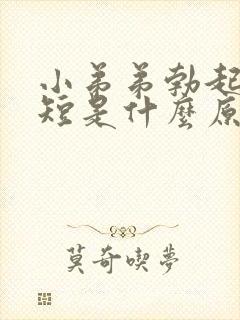 小弟弟勃起
短是什麼原
莫奇喫夢